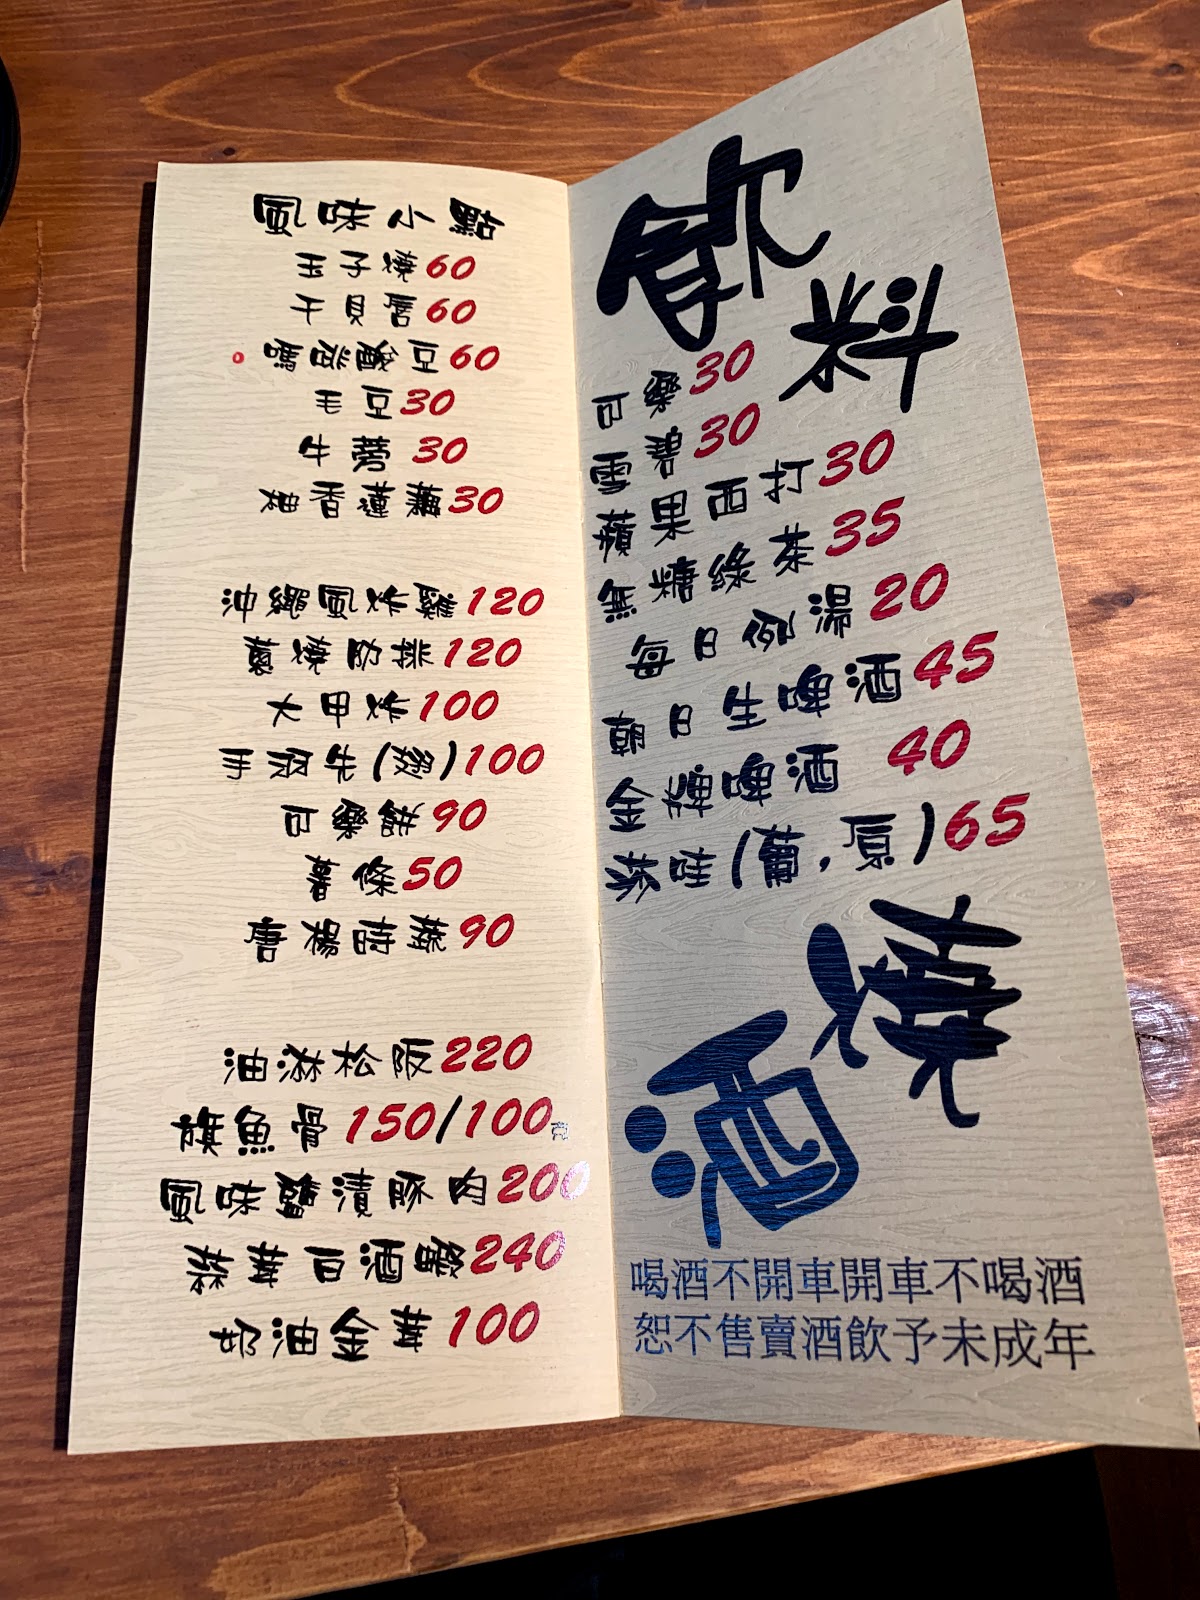 風味小點
玉子燒60
干貝唇60
60
毛豆30
牛蒡 30
柚香蓮藕30
沖繩風炸雞120
蔥燒肋排120
大甲炸100
手羽先(翅)100
可樂餅90
薯條50
唐楊時蔬90
油淋松阪220
旗魚骨 150/100克
風味鹽漬豚肉200
白酒蜆240
奶油金茸 100
飲料
可樂30
雪碧30
蘋果西打30
無糖綠茶35
每日例湯20
朝日生啤酒45
金牌啤酒 40
莎哇(葡,原)65
燒酒
喝酒不開車開車不喝酒
恕不售賣酒飲予未成年